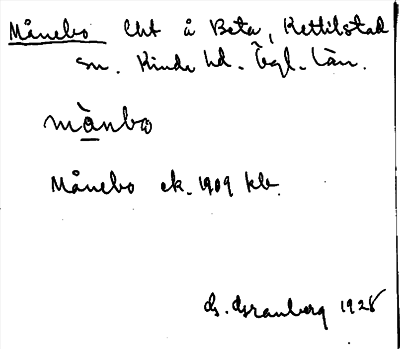 Månebo lht å Beta, Kettilstad
sn. Kinda hd. Ögl. län.
mànbo
Månebo ek. 1909 kb.
G. Granberg 1928